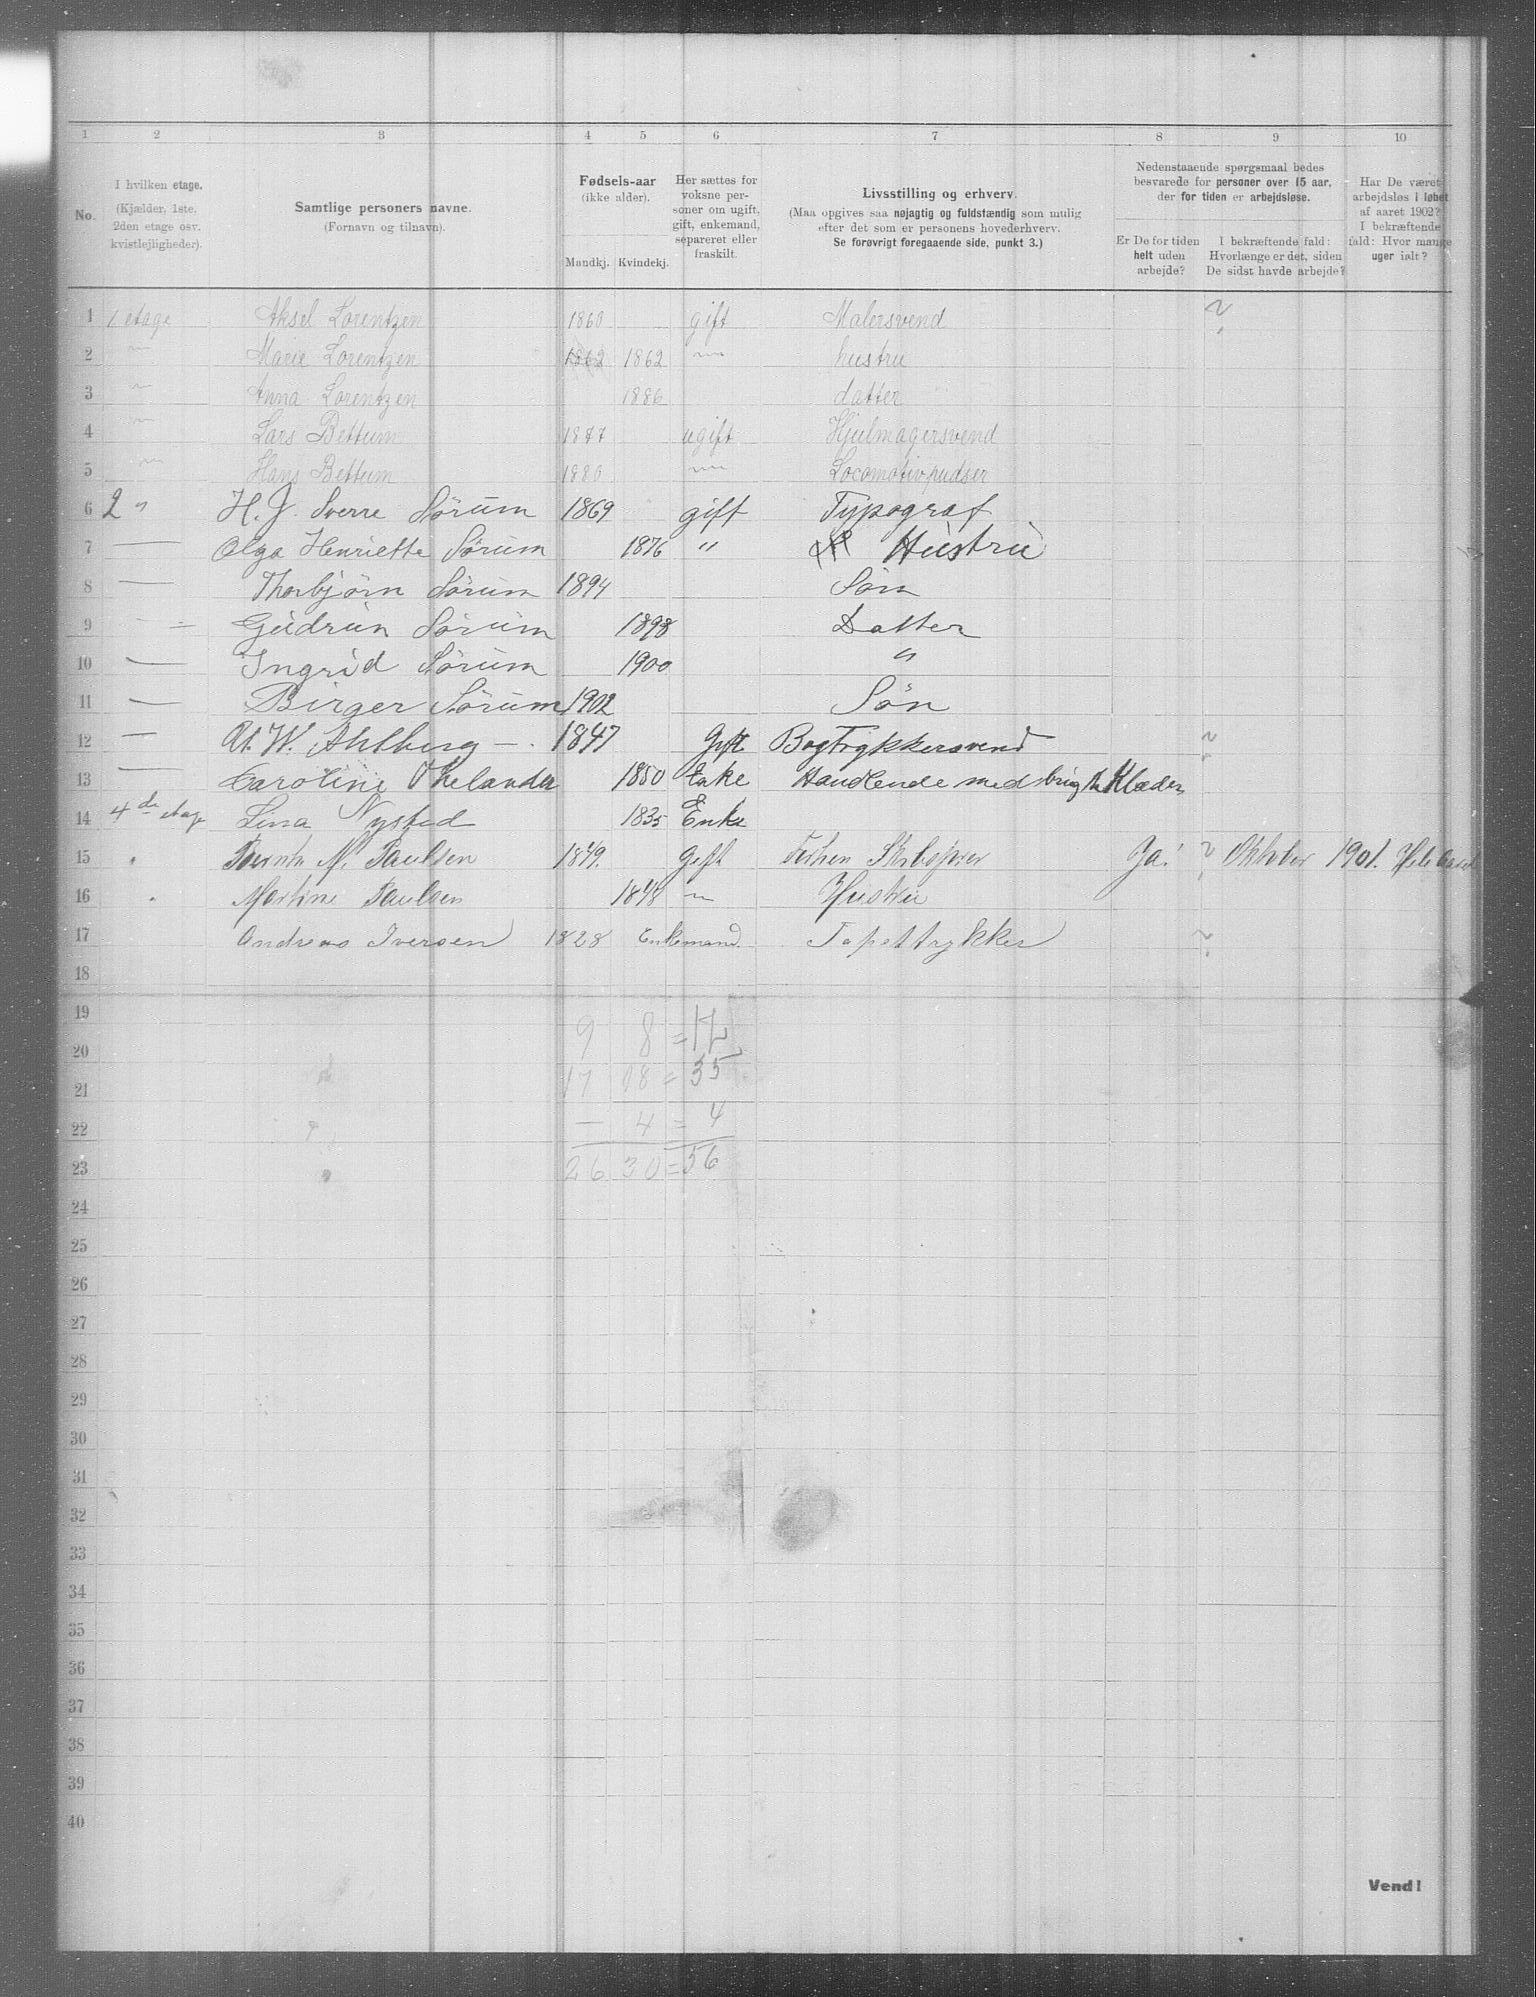 1 2 3 4 5 6 7 8 9 10
No.
I hvilken etage.
(Kjælder, 1ste.
2den etage osv.
kvistlejligheder).
Samtlige personers navne.
(Fornavn og tilnavn).
Fødsels-aar
(ikke alder).
Mandkj. Kvindekj.
Her sættes for
voksne per-
soner om ugift,
gift, enkemand,
separeret eller
fraskilt.
Livsstilling og erhverv.
(Maa opgives saa nøjagtig og fuldstændig som mulig
efter det som er personens hovederhverv.
Se forøvrigt foregaaende side, punkt 3.)
Nedenstaaende spørgsmaal bedes
besvarede for personer over 15 aar,
der for tiden er arbejdsløse.
Er De for tiden
helt uden
arbejde?
I bekræftende fald:
Hvorlænge er det, siden
De sidst havde arbejde?
Har De været
arbejdsløs i løbet
af aaret 1902?
I bekræftende
fald: Hvor mange
uger ialt?
1 1 etage Aksel Lorentzen 1860 gift Malersvend ?
2 " Marie Lorentzen 1862 1862 " hustru
3 " Anna Lorentzen 1886 datter
4 " Lars Bettum 1877 ugift Hjulmagersvend
5 " Hans Bettum 1880 " Locomotivpudser
6 2 " H. J. Sverre Sörum 1869 gift Typograf
7 — Olga Henriette Sörum 1876 " Hustru
8 — Thorbjörn Sörum 1894 Sön
9 — Gudrun Sörum 1898 Datter
10 — Ingrid Sörum 1900 "
11 — Birger Sörum 1902 Sön
12 — W. Ahlberg — . 1847 Gift Bogtrykkersvend ?
13 — Caroline Thelander 1850 Enke Handlende med brugte Klæder
14 4de etage Lina Nysted 1835 Enke
15 " M. Paulsen 1849. Gift Ja! ? Oktober 1901. Hele
16 " Martine Paulsen 1848 " Hustru
17 Andreas Iversen 1828 Enkemand Tapettrykker ?
18
19 9 8 = 17
20
21 17 18 = 35
22 — 4 = 4
23 26 30 = 56
24
25
26
27
28
29
30
31
32
33
34
35
36
37
38
39
40
Vend!